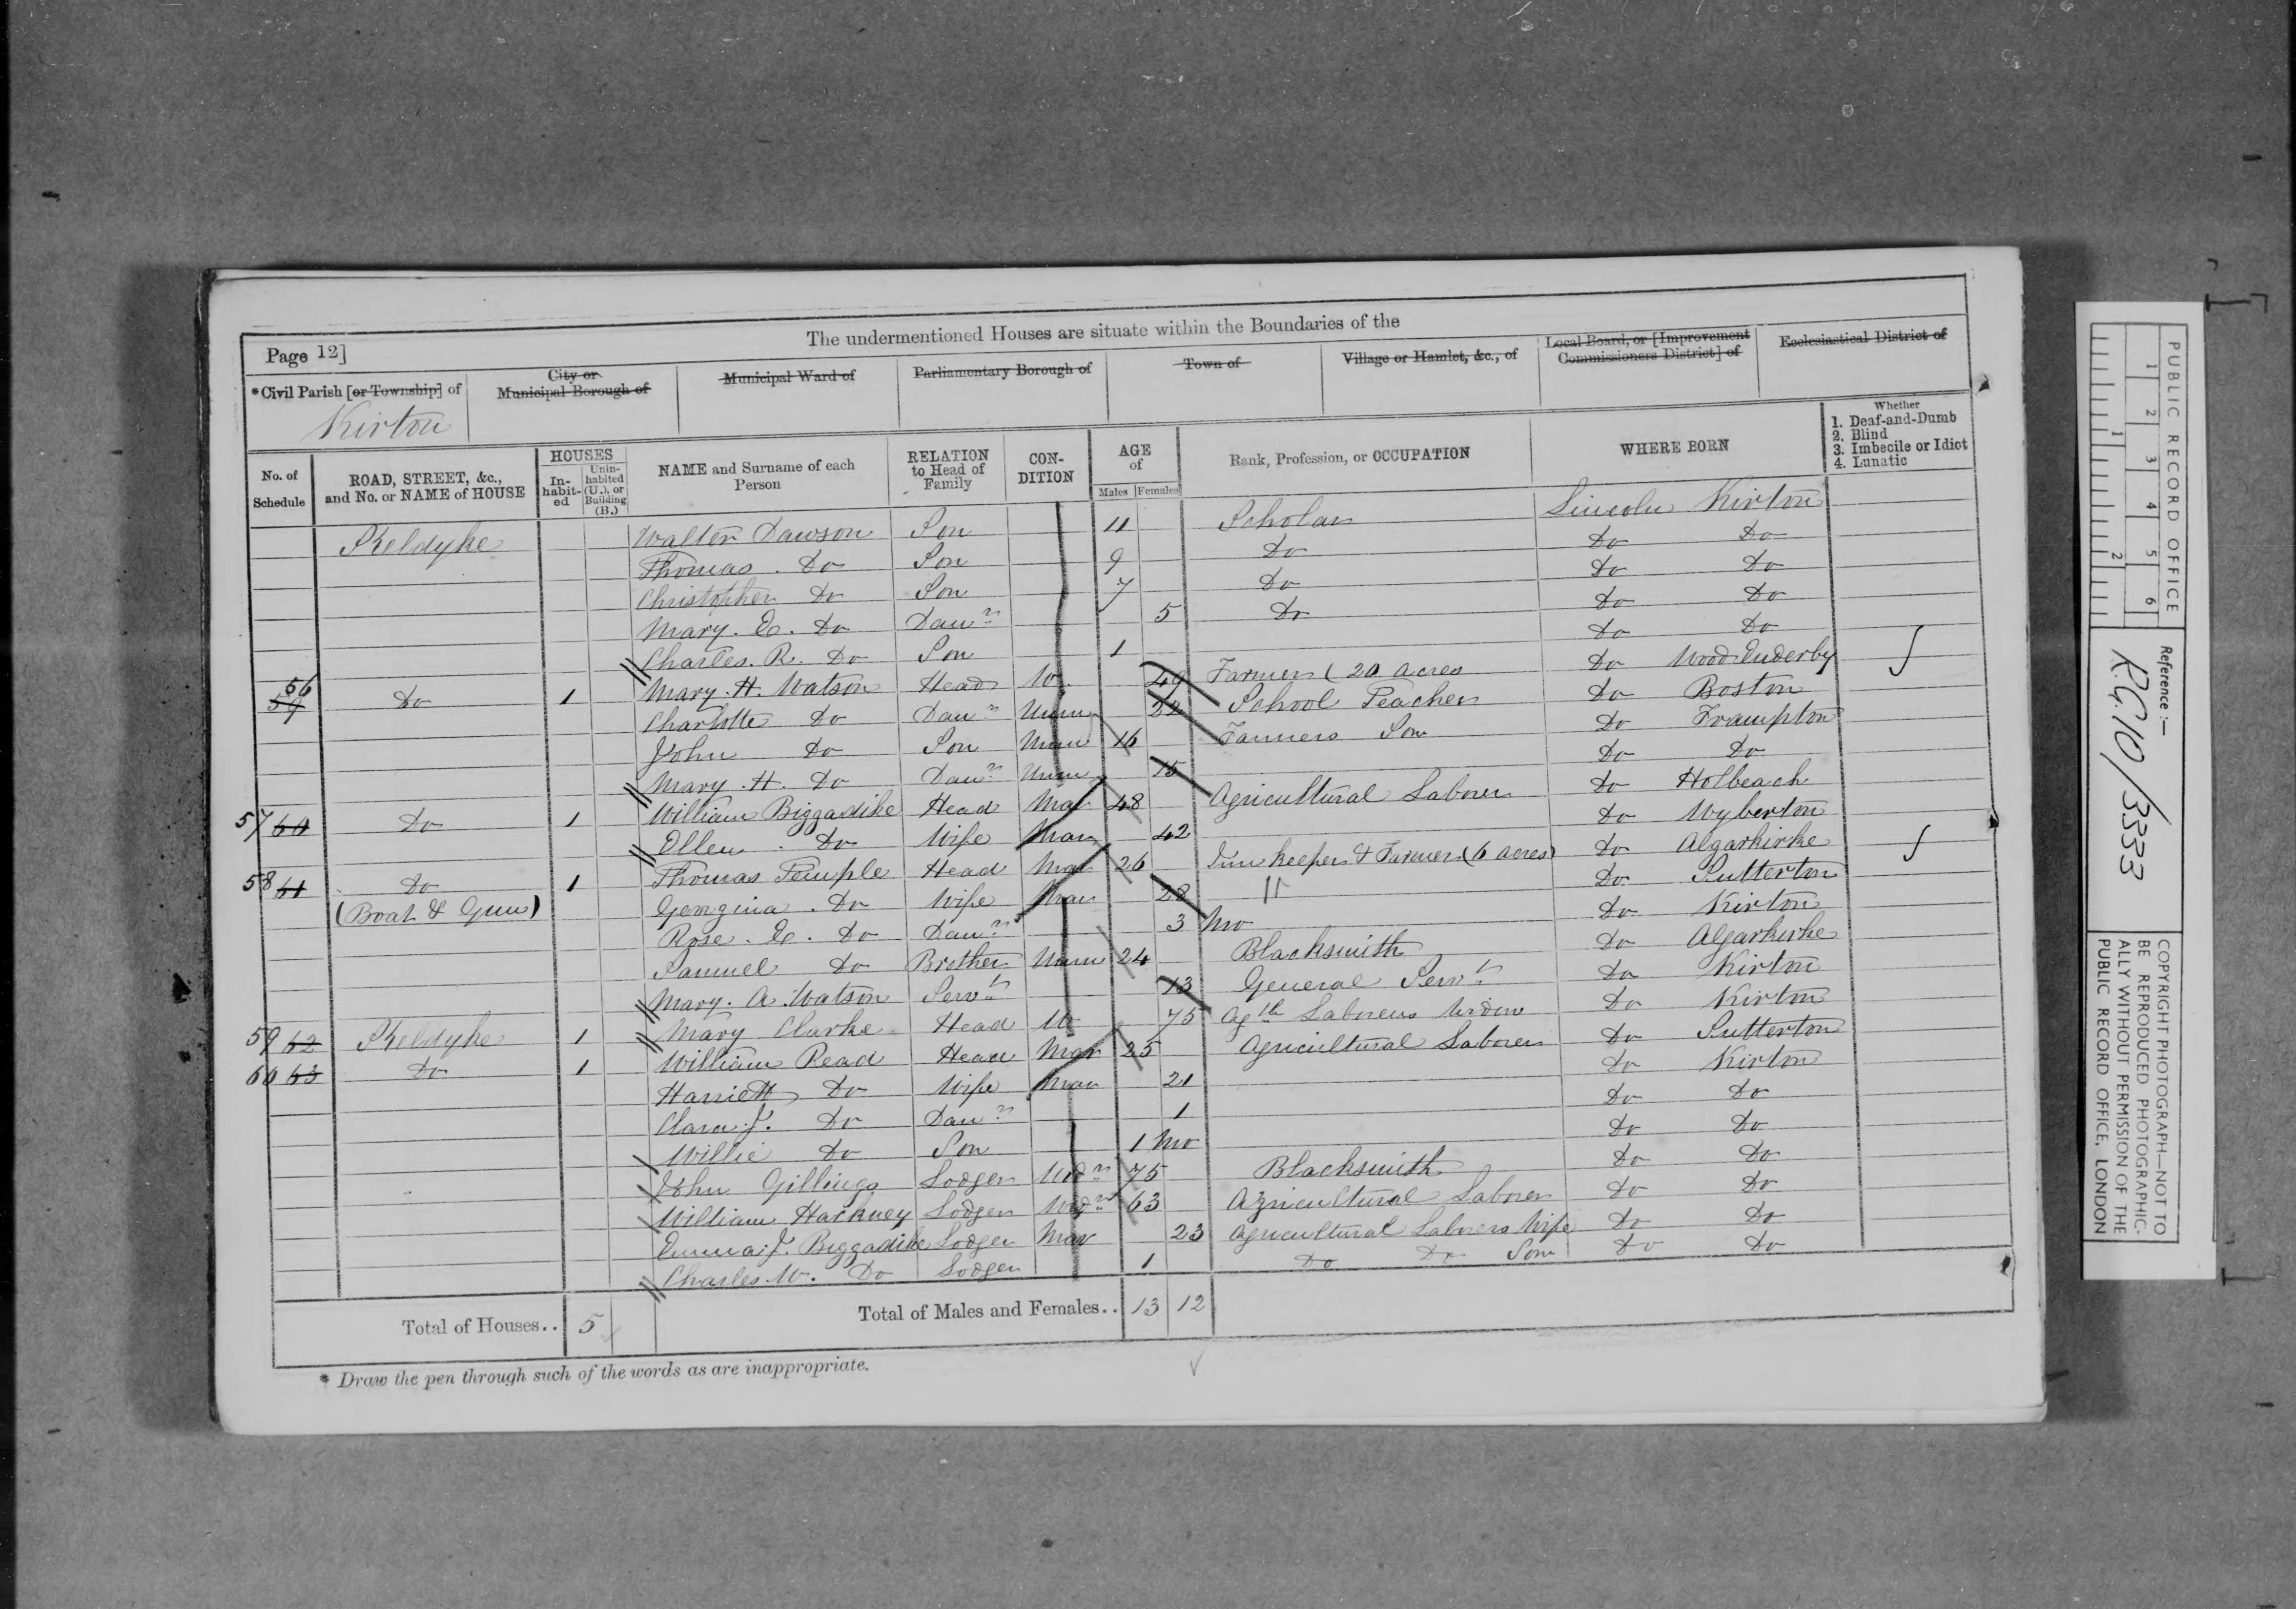 The undermentioned Houses are situate within the Boundaries of the
Page 12]
*Civil Parish [or Township] of
Kirton
City or
Municipal Borough of
Municipal Ward of
Parliamentary Borough of
Town of
Village or Hamlet, &c., of
Local Board, or [Improvement
Commissioners District] of
Ecclesiastical District of
No. of
Schedule
ROAD, STREET, &c.,
and No. or NAME of HOUSE
HOUSES
In-
habit-
ed
Unin-
habited
(U.), or
Building
(B.)
NAME and Surname of each
Person
RELATION
to Head of
Family
CON-
DITION
AGE
of
Males Females
Rank, Profession, or OCCUPATION
WHERE BORN
Whether
1. Deaf-and-Dumb
2. Blind
3. Imbecile or Idiot
4. Lunatic
Skeldyke Walter Dawson Son 11 Scholar Lincoln Kirton
Thomas Do Son 9 Do Do Do
Christopher Do Son 7 Do Do Do
Mary. E. Do Daur 5 Do Do Do
Charles. R. Do Son 1 Do Do
56 59 Do 1 Mary. H. Watson Head W. 49 Farmer (20 acres Do Wood Enderby
Charlotte Do Daur Unm 22 School Teacher Do Boston
John Do Son Unm 16 Farmers Son Do Frampton
Mary. H. Do Daur Unm 15 Do Do
57 60 Do 1 William Biggadike Head Mar 48 Agricultural Laborer Do Holbeach
Ellen Do Wife Mar 42 Do Wyberton
58 61 Do 1 Thomas Temple Head Mar 26 Inn keeper & Farmer (6 acres) Do Algarkirke
(Boat & Gun) Georgina Do Wife Mar 28 Do Sutterton
Rose. E. Do Daur 3 Mo Do Kirton
Samuel Do Brother Unm 24 Blacksmith Do Algarkirke
Mary. A. Watson Servt 13 General Servt Do Kirton
59 62 Skeldyke 1 Mary Clarke Head W 75 Agll Laborers Widow Do Kirton
60 63 Do 1 William Read Head Mar 25 Agricultural Laborer Do Sutterton
Harriett Do Wife Mar 21 Do Kirton
Clara. J. Do Daur 1 Do Do
Willie Do Son 1 Mo Do Do
John Gillings Lodger Widr 75 Blacksmith Do Do
William Hackney Lodger Widr 63 Agricultural Laborer Do Do
Emma. J. Biggadike Lodger Mar 23 Agricultural Laborers Wife Do Do
Charles. W. Do Lodger 1 Do Do Son Do Do
Total of Houses.. 5
Total of Males and Females.. 13 12
* Draw the pen through such of the words as are inappropriate.
PUBLIC RECORD OFFICE
1 2 3 4 5 6
1 2
Reference:—
R.G. 10/3333
COPYRIGHT PHOTOGRAPH—NOT TO
BE REPRODUCED PHOTOGRAPHIC-
ALLY WITHOUT PERMISSION OF THE
PUBLIC RECORD OFFICE, LONDON